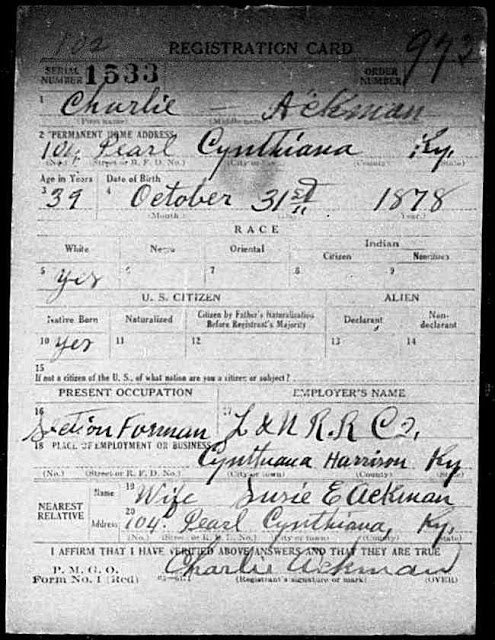 102 REGISTRATION CARD 973
SERIAL NUMBER 1533 ORDER NUMBER
1 Charlie — Ackman
(First name) (Middle name)
2 PERMANENT HOME ADDRESS
104 Pearl Cynthiana Ky.
(No.) (Street or R. F. D. No.) (City or town) (County) (State)
Age in Years Date of Birth
3 39 4 October 31st 1878
(Month.) (Day.) (Year.)
RACE
White Negro Oriental Indian
Citizen Noncitizen
5 yes 6 7 8 9
U. S. CITIZEN ALIEN
Native Born Naturalized Citizen by Father's Naturalization Before Registrant's Majority Declarant Non-declarant
10 yes 11 12 13 14
15
If not a citizen of the U. S., of what nation are you a citizen or subject?
PRESENT OCCUPATION EMPLOYER'S NAME
16 Section Forman 17 L & N R.R Co.
18 PLACE OF EMPLOYMENT OR BUSINESS
Cynthiana Harrison Ky
(No.) (Street or R. F. D. No.) (City or town) (County) (State)
NEAREST RELATIVE
Name 19 Wife Susie E Ackman
Address 20 104 Pearl Cynthiana, Ky.
(No.) (Street or R. F. D. No.) (City or town) (County) (State)
I AFFIRM THAT I HAVE VERIFIED ABOVE ANSWERS AND THAT THEY ARE TRUE
P. M. G. O. Charlie Ackman
Form No. 1 (Red) (Registrant's signature or mark) (OVER)